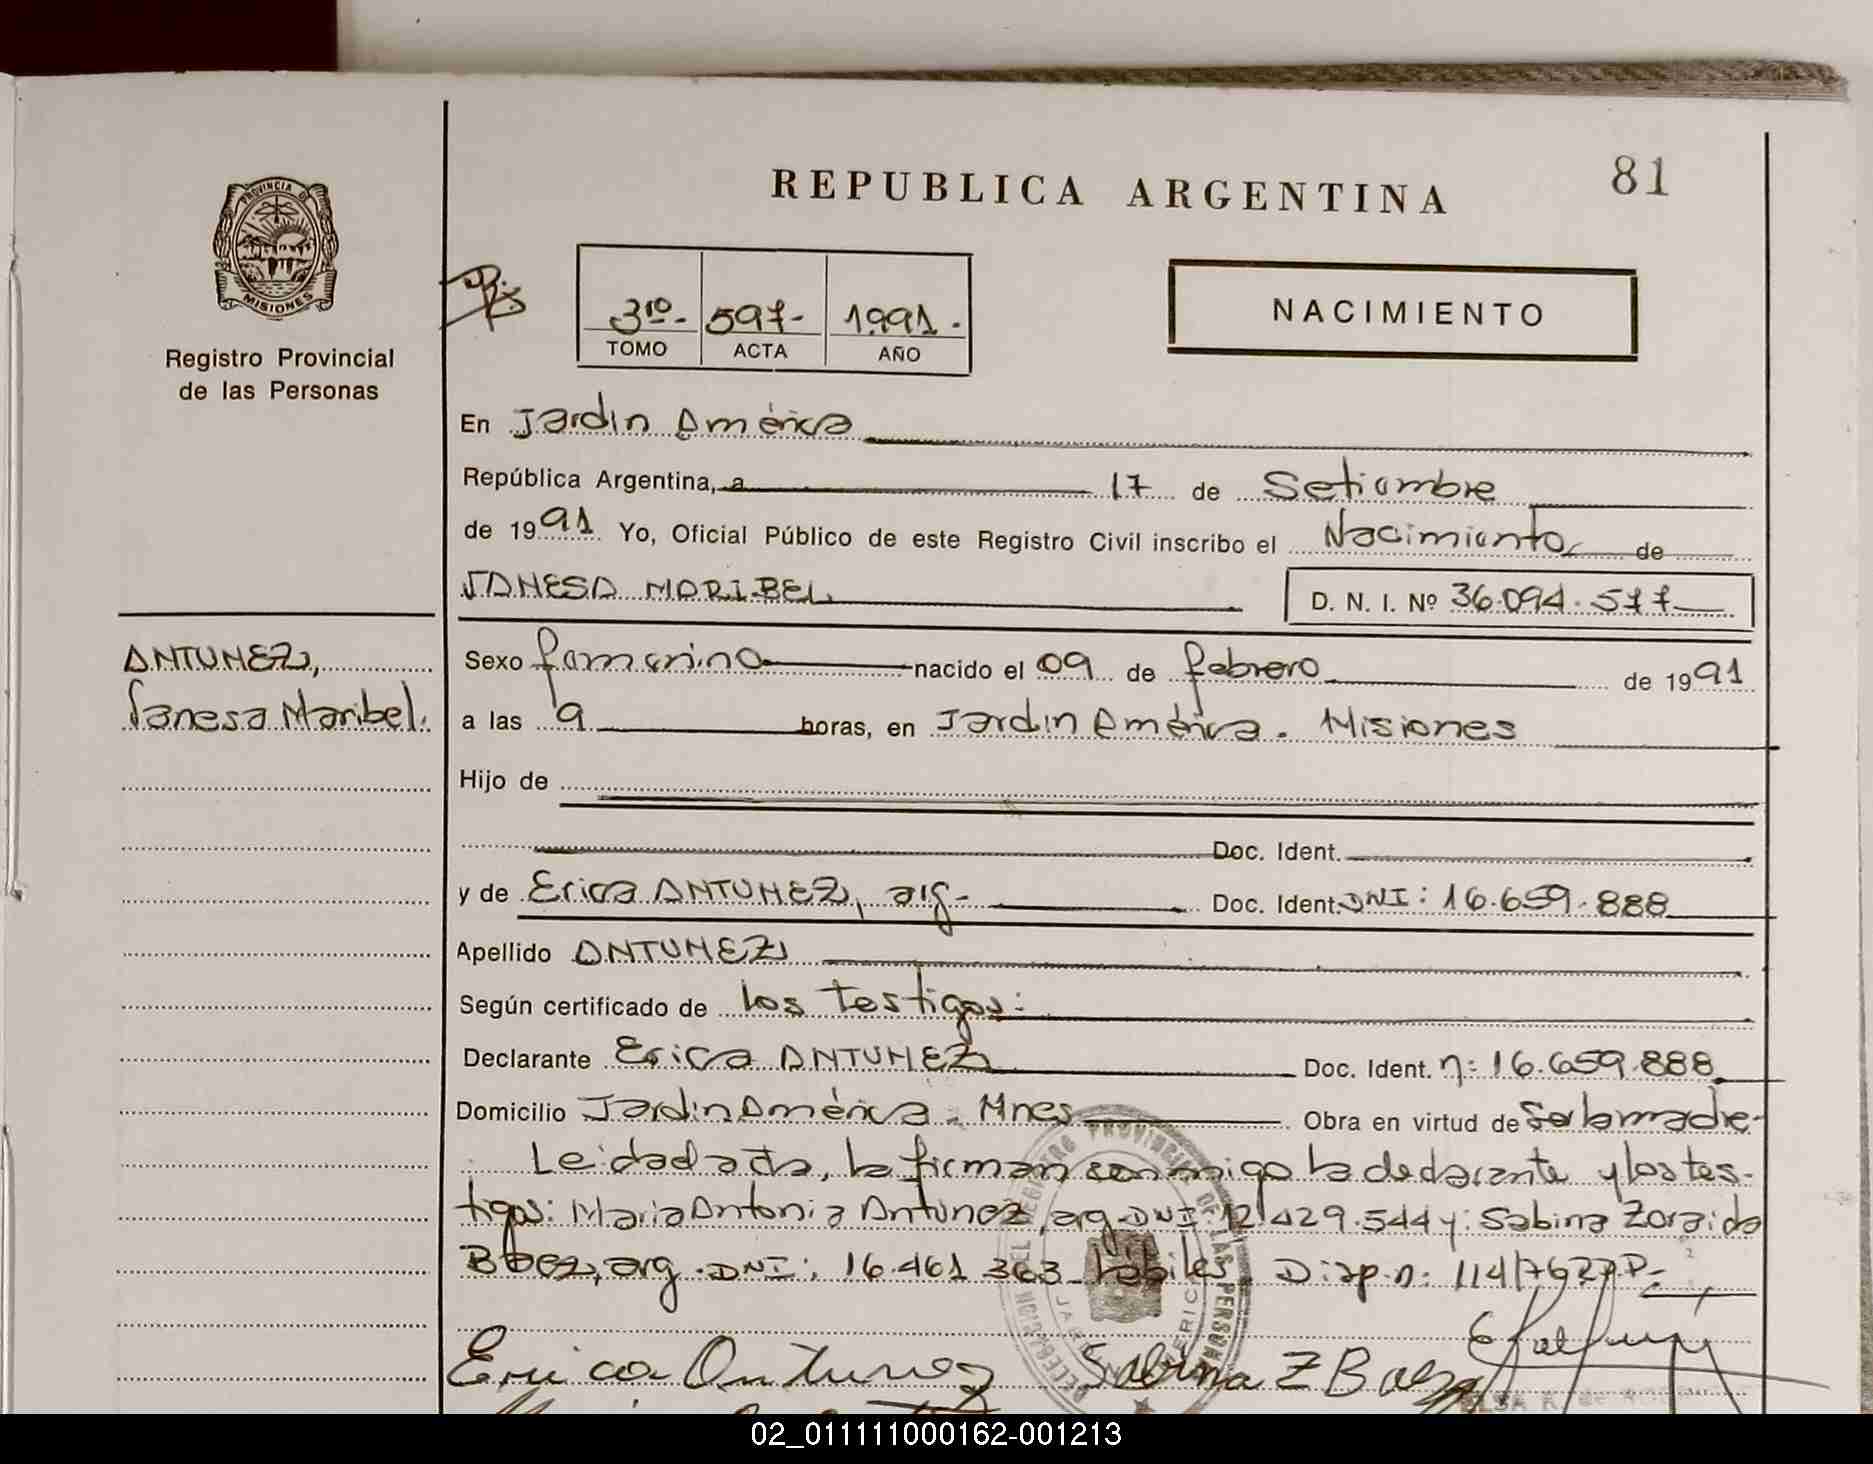 81
REPUBLICA ARGENTINA
PROVINCIA DE
MISIONES
Registro Provincial
de las Personas
3ro.- 597- 1991.-
TOMO ACTA AÑO
NACIMIENTO
En Jardin América
República Argentina, a 17 de Setiembre
de 1991 Yo, Oficial Público de este Registro Civil inscribo el Nacimiento de
VANESA MARIBEL
D. N. I. Nº 36.094.577
ANTUNEZ,
Vanesa Maribel.
Sexo femenino nacido el 09 de febrero de 1991
a las 9 horas, en Jardin América. Misiones
Hijo de
Doc. Ident.
y de Erica ANTUNEZ, arg- Doc. Ident. DNI: 16.659.888
Apellido ANTUNEZ
Según certificado de los testigos:
Declarante Erica ANTUNEZ Doc. Ident. n: 16.659.888
Domicilio Jardin América - Mnes Obra en virtud de Ser la madre-
Leida el acta, la firman conmigo la declarante y los tes-
tigos: Maria Antonia Antunez, arg. DNI: 12.429.544 y: Sabina Zoraida
Baez, arg. DNI: 16.461.363 hábiles. Disp. n: 114/76
Erica Antunez Sabina Z Baez
02_011111000162-001213